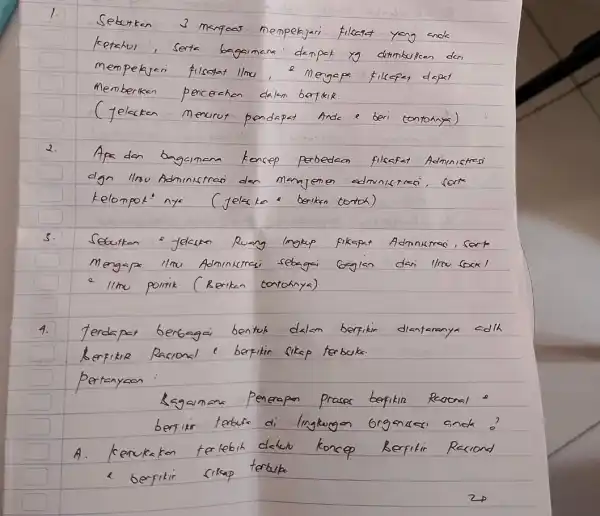 1. Sebutkan 3 manfaat mempelajari filsafat yang anda
ketahui, serta bagaimana dampak yg ditimbulkan dari
mempelajari filsafat ilmu, & mengapa filsafat dapat
memberikan pencerahan dalam berfikir
(Jelaskan menurut pendapat Anda & beri contohnya)
2. Apa dan bagaimana konsep perbedaan filsafat Administrasi
dgn Ilmu Administrasi dan manajemen administrasi, serta
kelompok² nya (jelaskan & berikan contoh)
3. Sebutkan & jelaskan Ruang lingkup filsafat Administrasi, serta
mengapa ilmu Administrasi sebagai bagian dari ilmu sosial
& ilmu politik (Berikan contohnya)
4. Terdapat berbagai bentuk dalam berfikir diantaranya adlh
Berfikir Rasional & berfikir sikap terbuka.
Pertanyaan :
Bagaimana Penerapan proses berfikir Rasional &
berfikir terbuka di lingkungan Organisasi anda ?
A. Kemukakan terlebih dahulu konsep Berfikir Rasional
& berfikir sikap terbuka